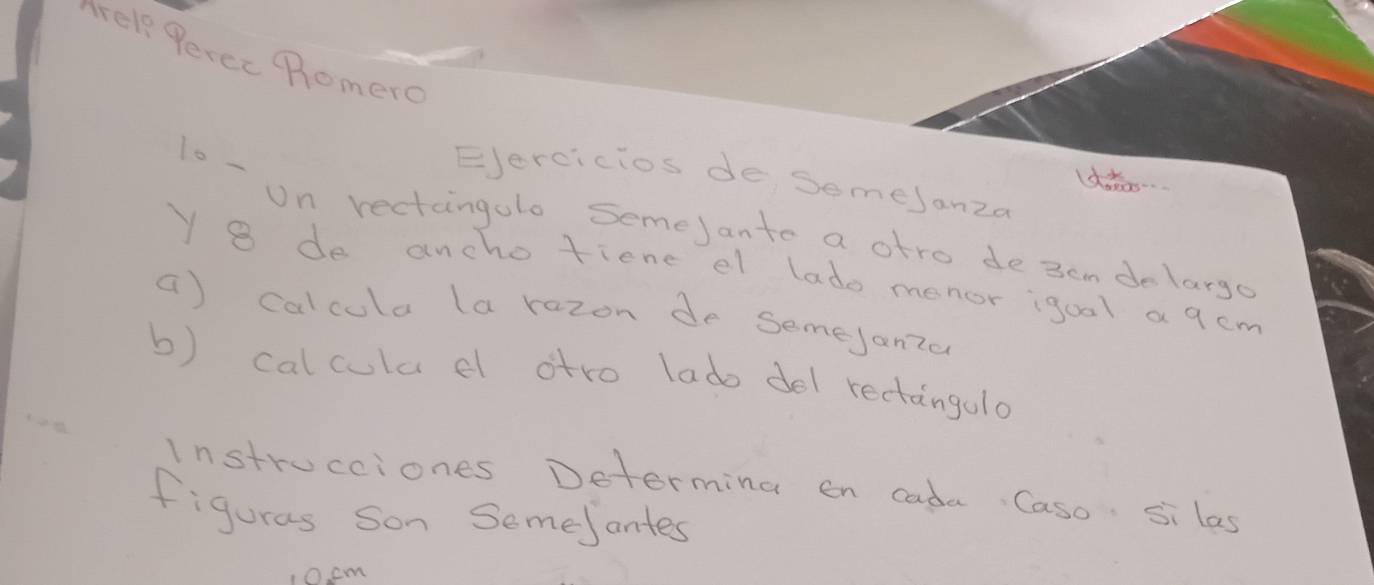 Areli Perez Romero
Ejercicios de Semejanza
1.- Un rectángulo Semejante a otro de 3cm de largo
Y 8 de ancho tiene el lado menor igual a 9cm
a) calcula la razon de Semejanza
b) calcula el otro lado del rectángulo
Instrucciones Determina en cada Caso si las
figuras Son Semejantes
10cm